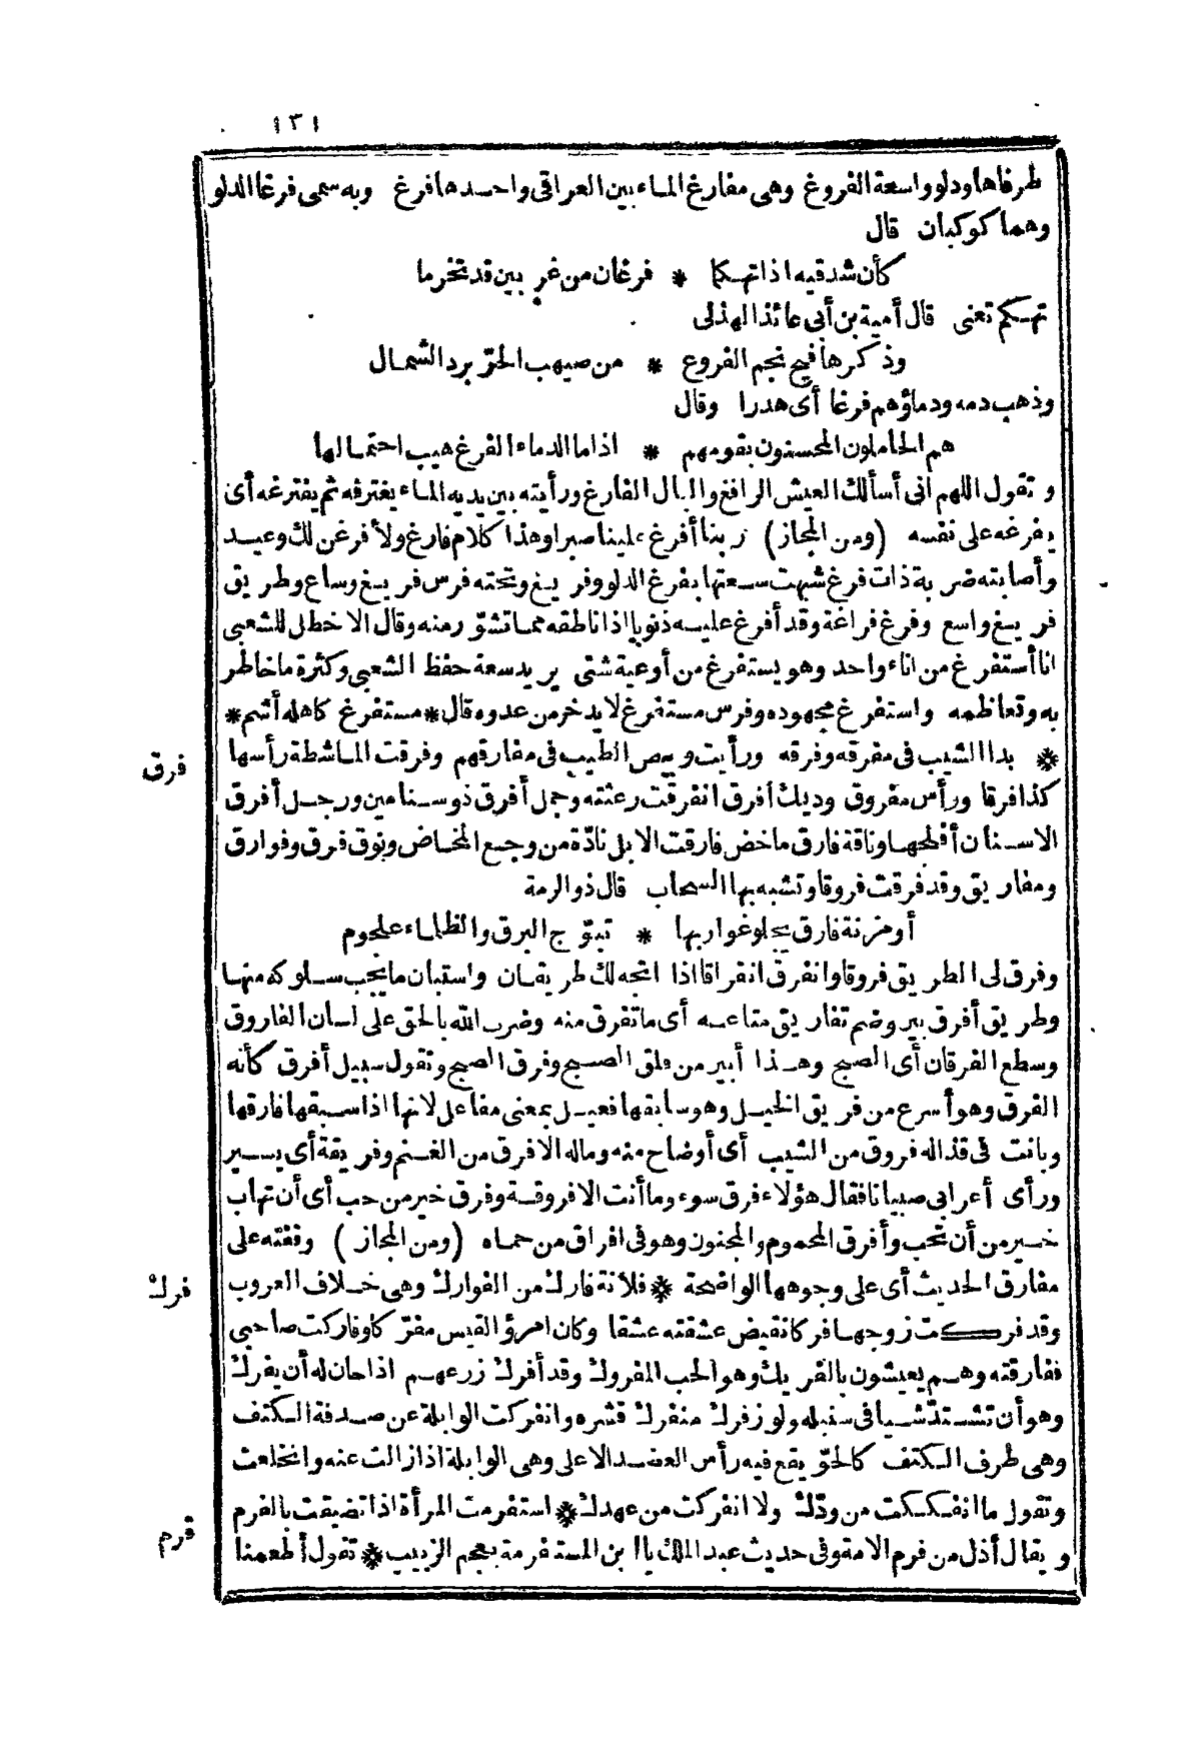 ١٣١
طرفاها ودلو واسعة الفروغ وهى مفارغ الماء بين العراقى واحدها فرغ وبه سمى فرغا الدلو
وهما كوكبان قال
كأن شدقيه اذا تهكما * فرغان من غربين قد تخرما
تهكم تغنى قال أمية بن أبى عائذ الهذلى
وذكرها فيح نجم الفروع * من صيهب الحرّ برد الشمال
وذهب دمه ودماؤهم فرغا أى هدرا وقال
هم الحاملون المحسنون بقومهم * اذا ما الدماء الفرغ هيب احتمالها
وتقول اللهم انى أسألك العيش الرافغ والبال الفارغ ورأيته بين يديه الماء يغترفه ثم يفترغه أى
يفرغه على نفسه (ومن المجاز) ربنا أفرغ علينا صبرا وهذا كلام فارغ ولأفرغن لك وعيد
وأصابته ضربة ذات فرغ شبهت سعتها بفرغ الدلو وفريغ وتحته فرس فريغ وساع وطريق
فريغ واسع وفرغ فراغة وقد أفرغ عليه ذنوبا اذا ناطقه مما تشوّر منه وقال الاخطل للشعبى
انا أستفرغ من اناء واحد وهو يستفرغ من أوعية شتى يريد سعة حفظ الشعبى وكثرة ما خاطر
به وتعاظمه واستفرغ مجهوده وفرس مستفرغ لا يدخر من عدوه قال * مستفرغ كاهله أشم *
* بدا الشيب فى مفرقه وفرقه ورأيت وبيص الطيب فى مفارقهم وفرقت الماشطة رأسها
فرق
كذا فرقا ورأس مفروق وديك أفرق انفرقت رعثته وجمل أفرق ذو سنامين ورجل أفرق
الاسنان أفلجها وناقة فارق ماخض فارقت الابل نادّة من وجع المخاض ونوق فرق وفوارق
ومفاريق وقد فرقت فروقا وتشبه بها السحاب قال ذو الرمة
أو مزنة فارق يجلو غواربها * تبوّج البرق والظلماء علجوم
وفرق لى الطريق فروقا وانفرق انفراقا اذا اتجه لك طريقان واستبان ما يجب سلوكه منها
وطريق أفرق بين وضم تفاريق متاعه أى ما تفرق منه وضرب الله بالحق على لسان الفاروق
وسطع الفرقان أى الصبح وهذا أبين من فلق الصبح وفرق الصبح وتقول سبيل أفرق كأنه
الفرق وهو أسرع من فريق الخيل وهو سابقها فعيل بمعنى مفاعل لانها اذا سبقها فارقها
وبانت فى قذاله فروق من الشيب أى أوضاح منه وماله الا فرق من الغنم وفريقة أى يسير
ورأى أعرابى صبيانا فقال هؤلاء فرق سوء وما أنت الا فروقة وفرق خير من حب أى أن تهاب
خير من أن تحب وأفرق المحموم والمجنون وهو فى افراق من حماه (ومن المجاز) وقفته على
مفارق الحديث أى على وجوهها الواضحة * فلانة فارك من الفوارك وهى خلاف العروب
فرك
وقد فركت زوجها فركا نقيض عشقته عشقا وكان امرؤ القيس مفرّكا وفاركت صاحبى
فارقته وهم يعيشون بالفريك وهو الحب المفروك وقد أفرك زرعهم اذا حان له أن يفرك
وهو أن تشتدّ شيا فى سنبله ولوز فرك منفرك قشره وانفركت الوابلة عن صدفة الكتف
وهى طرف الكتف كالحقّ يقع فيه رأس العضد الاعلى وهى الوابلة اذا زالت عنه وانخلعت
وتقول ما انفككت من ودّك ولا انفركت من عهدك * استفرمت المرأة اذا تضيقت بالفرم
فرم
ويقال أذل من فرم الامة وفى حديث عبد الملك يا ابن المستفرمة بعجم الزبيب * تقول أطعمنا